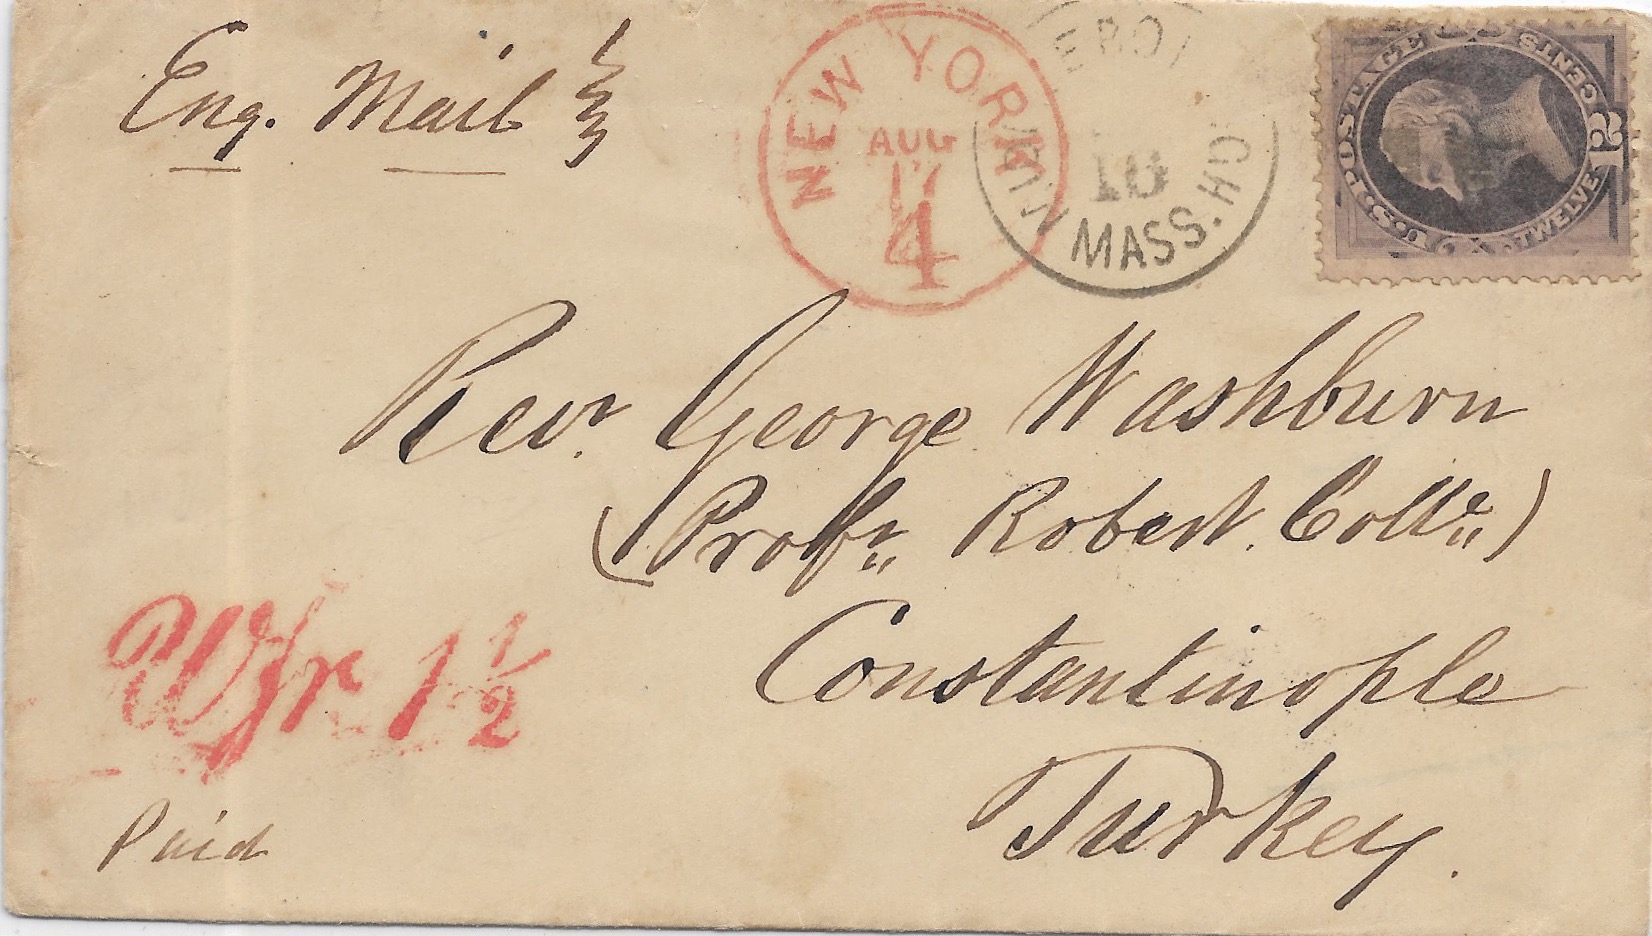 Eng. Mail
NEW YORK
AUG
17
4
MASS.
U.S. POSTAGE
TWELVE 12 CENTS
Rev. George Washburn
(Profr. Robert. Colle.)
Constantinople
Turkey.
Wfr 1 1/2
Paid